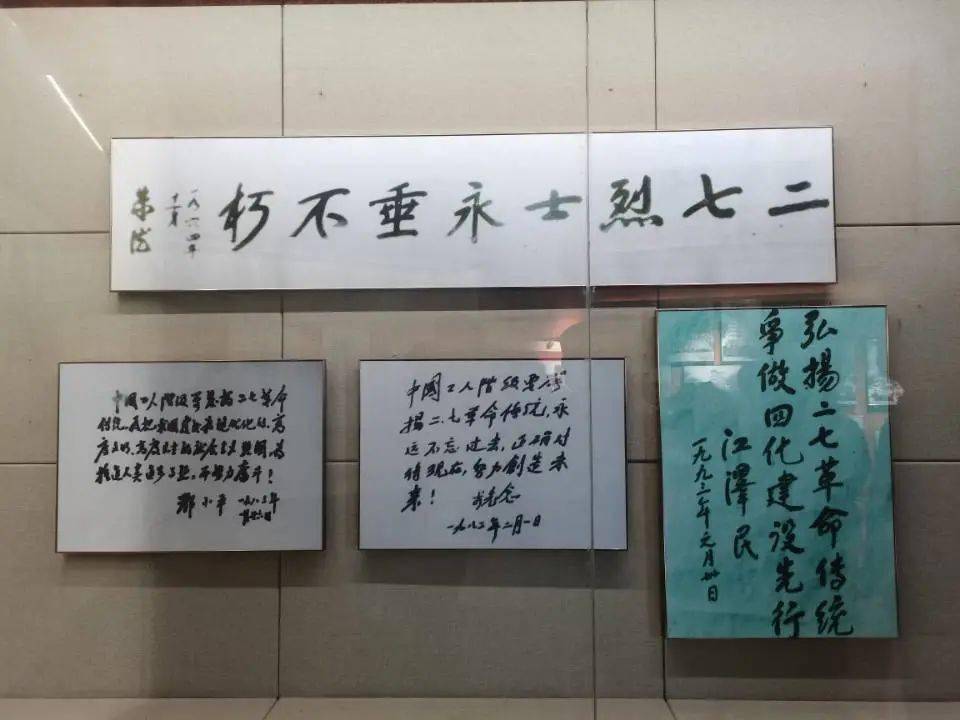 二七烈士永垂不朽
一九六四年
十二月
中国工人阶级要发扬二七革命
传统,为把我国建设成现代化的、高
度文明、高度民主的社会主义强国,为
推进人类进步事业,而努力奋斗!
邓小平
一九八三年
中國工人階级要發
揚二七革命传统,永
远不忘过去,正确对
待现在,努力創造未
来!
李先念
一九八三年二月一日
弘揚二七革命传統
爭做四化建設先行
江澤民
一九九三年元月卅日